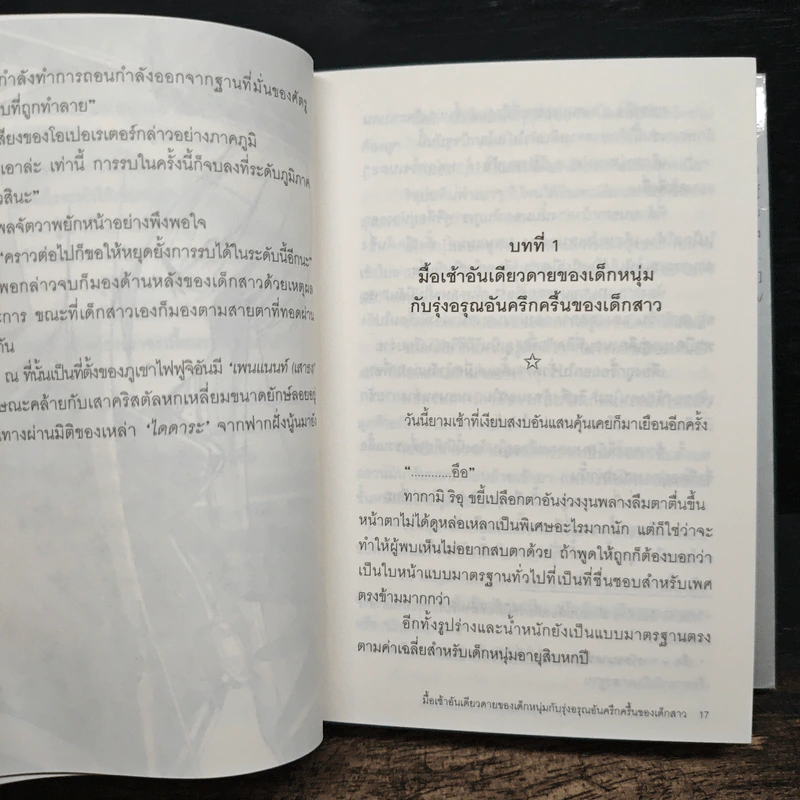 กำลังทำการถอนกำลังออกจากฐานที่มั่นของศัตรู
บที่ถูกทำลาย”
สียงของโอเปอเรเตอร์กล่าวอย่างภาคภูมิ
เอาล่ะ เท่านี้ การรบในครั้งนี้ก็จบลงที่ระดับภูมิภาค
วสินะ”
พลจัตวาพยักหน้าอย่างพึงพอใจ
“คราวต่อไปก็ขอให้หยุดยั้งการรบได้ในระดับนี้อีกนะ”
พอกล่าวจบก็มองด้านหลังของเด็กสาวด้วยเหตุผล
ะการ ขณะที่เด็กสาวเองก็มองตามสายตาที่ทอดผ่าน
กัน
ณ ที่นั้นเป็นที่ตั้งของภูเขาไฟฟูจิอันมี ‘เพนแนนท์ (เสาธง
ษณะคล้ายกับเสาคริสตัลหกเหลี่ยมขนาดยักษ์ลอยอยู่
ทางผ่านมิติของเหล่า ‘ไดดาระ’ จากฟากฝั่งนู้นมายัง
บทที่ 1
มื้อเช้าอันเดียวดายของเด็กหนุ่ม
กับรุ่งอรุณอันครึกครื้นของเด็กสาว
วันนี้ยามเช้าที่เงียบสงบอันแสนคุ้นเคยก็มาเยือนอีกครั้ง
“............อือ”
ทากามิ ริอุ ขยี้เปลือกตาอันง่วงงุนพลางลืมตาตื่นขึ้น
หน้าตาไม่ได้ดูหล่อเหลาเป็นพิเศษอะไรมากนัก แต่ก็ใช่ว่าจะ
ทำให้ผู้พบเห็นไม่อยากสบตาด้วย ถ้าพูดให้ถูกก็ต้องบอกว่า
เป็นใบหน้าแบบมาตรฐานทั่วไปที่เป็นที่ชื่นชอบสำหรับเพศ
ตรงข้ามมากกว่า
อีกทั้งรูปร่างและน้ำหนักยังเป็นแบบมาตรฐานตรง
ตามค่าเฉลี่ยสำหรับเด็กหนุ่มอายุสิบหกปี
มื้อเช้าอันเดียวดายของเด็กหนุ่มกับรุ่งอรุณอันครึกครื้นของเด็กสาว 17